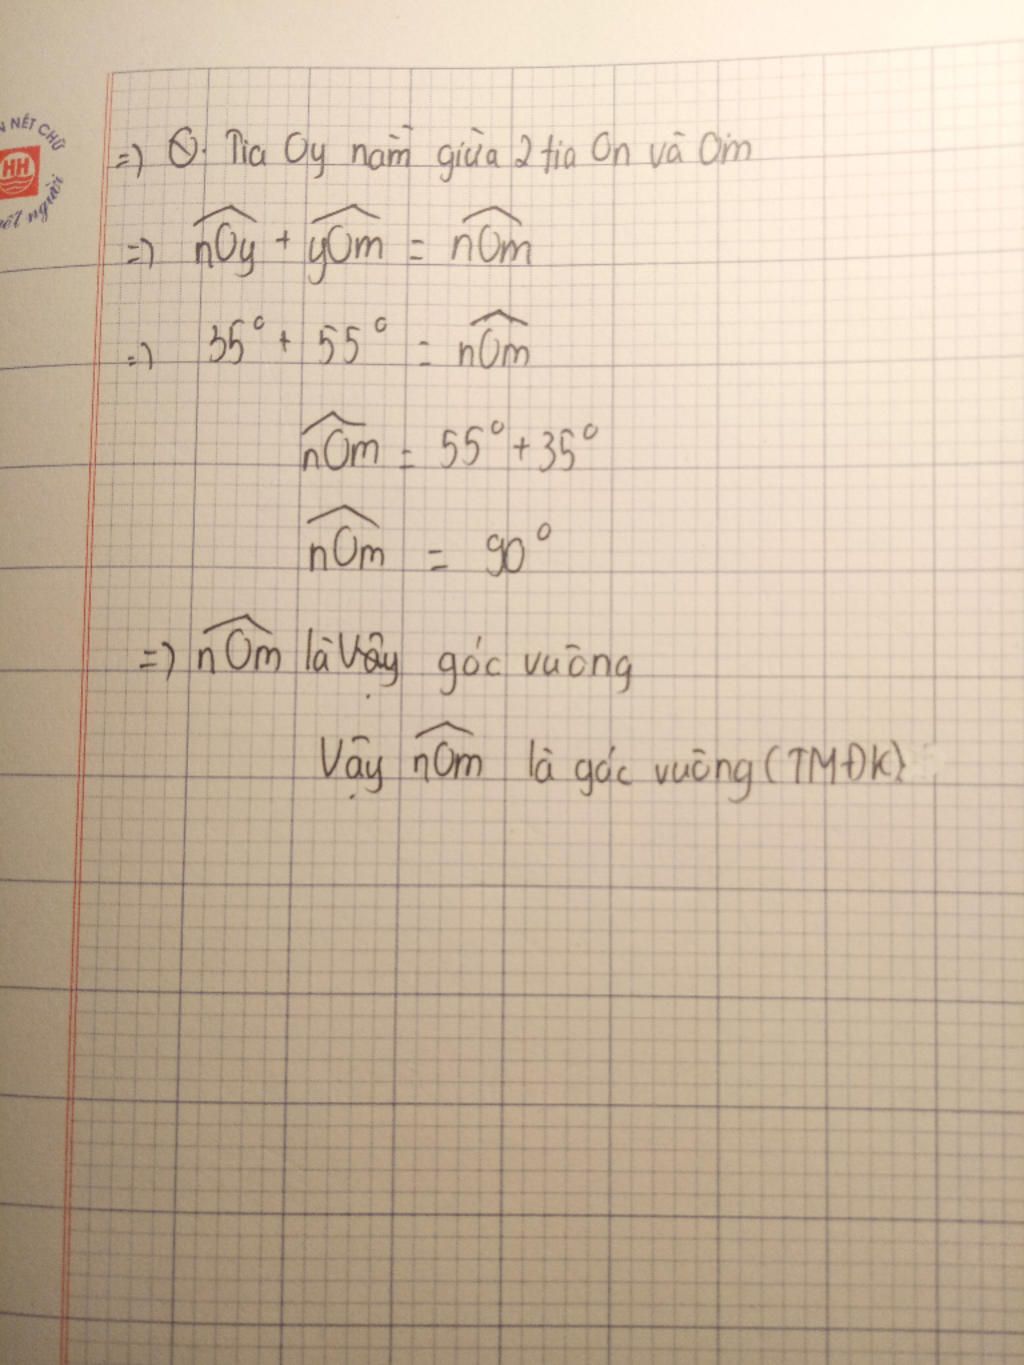 N NÉT CHỮ
HH
nết người
=> Tia Oy nằm giữa 2 tia On và Om
=> nOy + yOm = nOm
=> 35° + 55° = nOm
nOm = 55° + 35°
nOm = 90°
=> nOm là Vậy góc vuông
Vậy nOm là góc vuông (TMĐK)